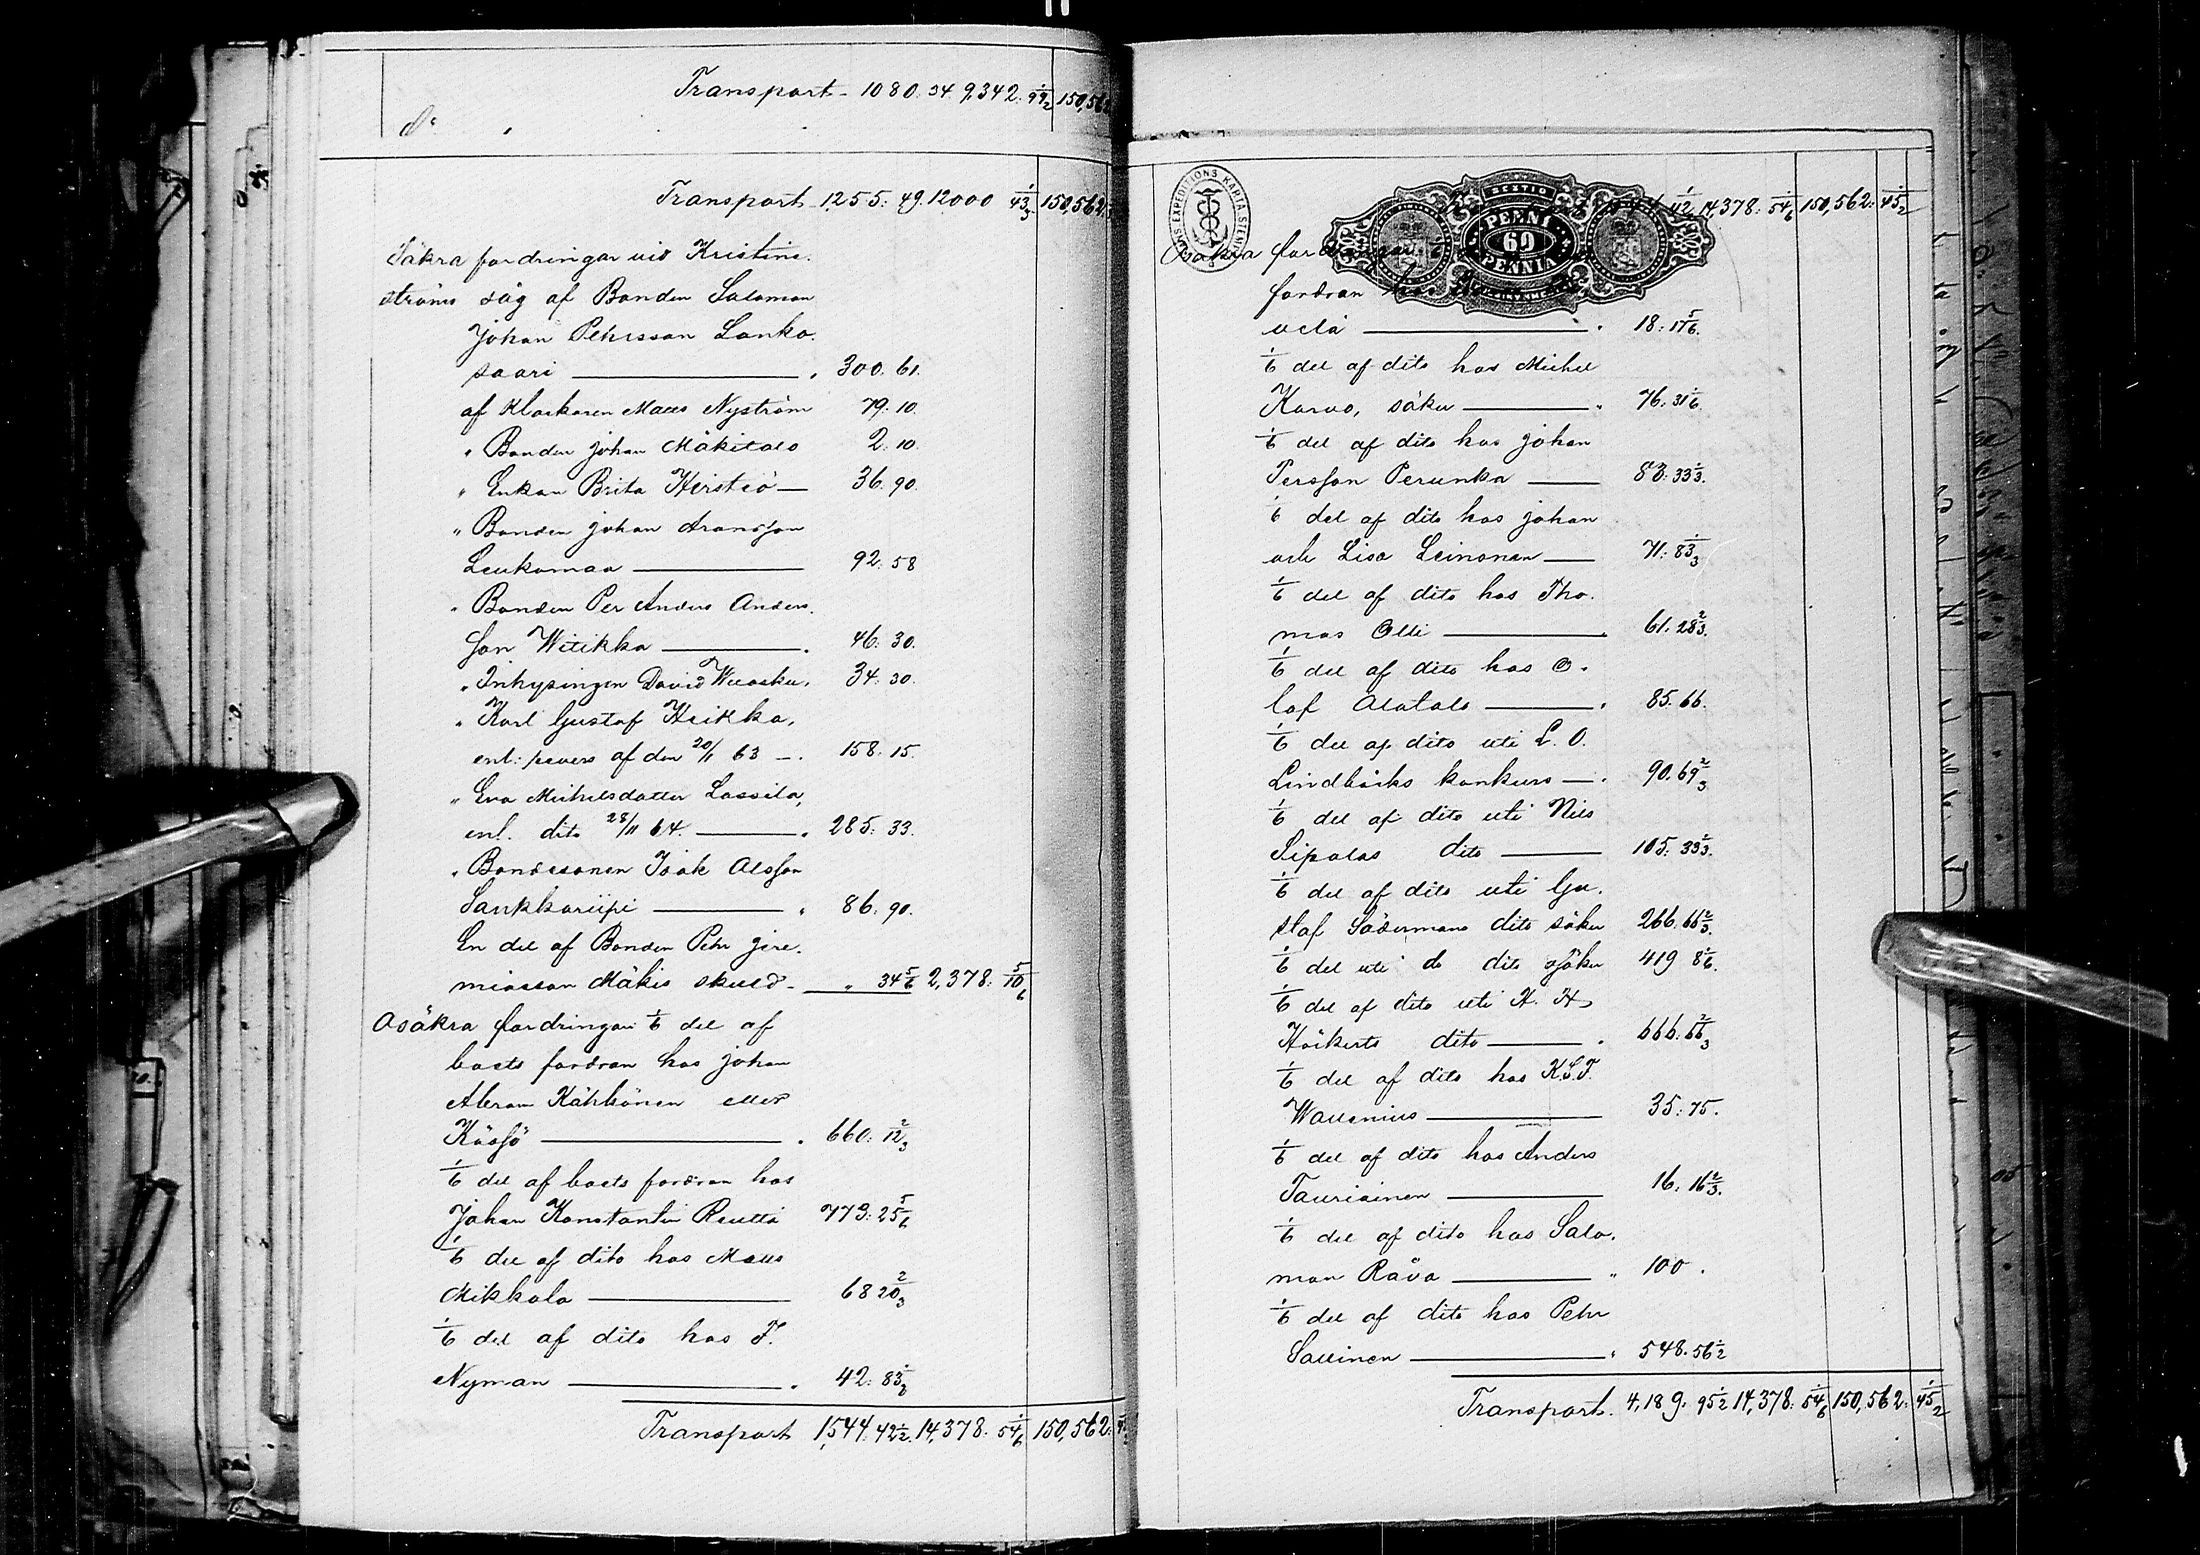 Transport 1080. 54 9,342: 99 1/2 150,562
d:o
Transport 1,255: 49. 12000 43 1/3 150,562:
Säkra fordringar vid Kristine-
ströms såg af Bonden Salomon
Johan Pehrsson Lanko-
saari 300. 61.
af Klockaren Maus Nyström 79. 10.
" Bonden Johan Mäkitalo 2. 10.
" Enkan Brita Heistiö 36. 90.
" Bonden Johan Aransson
Leukumaa 92. 58
" Bonden Per Anders Anders-
son Witikka 46. 30.
" Inhysingen David 34. 30.
" Karl Gustaf Heikka,
enl: revers af den 20/11 63 158. 15.
" Eva Michelsdotter Lassila,
enl. dito 28/11 64. 285. 33.
" Bondesonen Isak Olsson
Sankkariipi 86. 90.
En del af Bonden Pehr Jere-
miasson Mäkis skuld " 34 5/6 2,378. 10 5/6
Osäkra fordringar 1/6 del af
boets fordran hos Johan
Abram Kähkönen eller
Kössö 660. 12 2/3
1/6 del af boets fordran hos
Johan Konstantin Rautio 773: 25 5/6
1/6 del af dito hos Maus
Mikkola 68 20 2/3
1/6 del af dito hos F.
Nyman 42: 83 1/3
Transport 1,544. 42 1/2. 14,378: 54 1/6 150,562:
EXPEDITIONS KARTA STEMPEL
SEXTIO
PENNI
60
PENNIÄ
42 1/2 14,378: 54 1/6 150,562: 45 1/2
Osäkra
fordran
uclá 18: 17 5/6.
1/6 del af dito hos Michel
Karvo, säker 76. 31 1/6.
1/6 del af dito hos Johan
Persson Perunka 83. 33 1/3.
1/6 del af dito hos Johan
och Lisa Leinonen 71: 83 1/3
1/6 del af dito hos Tho-
mas Olli 61. 28 2/3.
1/6 del af dito hos O-
lof Alatalo 85. 66.
1/6 del af dito uti L. O.
Lindbäcks konkurs 90. 69 2/3
1/6 del af dito uti Nils
Sipolas dito 105. 33 1/3.
1/6 del af dito uti Gu-
staf Södermans dito säker 266. 66 2/3.
1/6 del uti do dito osäker 419 8 1/6.
1/6 del af dito uti H. H.
Höckerts dito 666. 66 2/3
1/6 del af dito hos K.G.F.
Wallenius 35: 75.
1/6 del af dito hos Anders
Tauriainen 16. 16 2/3.
1/6 del af dito hos Salo-
mon Råvo 100.
1/6 del af dito hos Pehr
Sallinen 548. 56 1/2
Transport. 4,189. 95 1/2 14,378. 54 1/6 150,562: 45 1/2